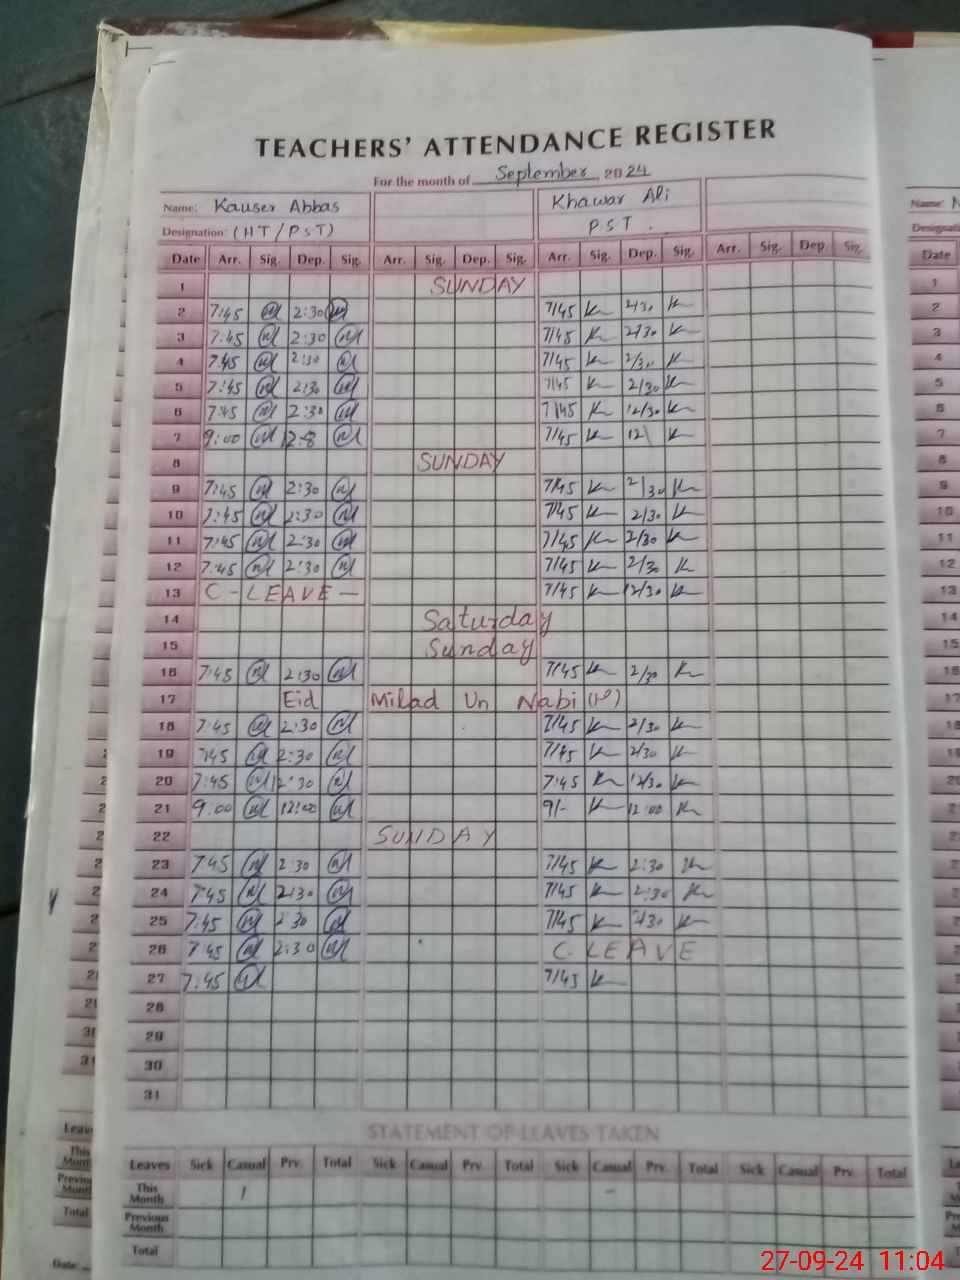 TEACHERS' ATTENDANCE REGISTER
For the month of September 2024
Name: Kauser Abbas Khawar Ali
Designation: (HT/PST) PST.
Date Arr. Sig. Dep. Sig. Arr. Sig. Dep. Sig. Arr. Sig. Dep. Sig. Arr. Sig. Dep. Sig.
1 SUNDAY
2 7:45 2:30 7/45 K 2/30 K
3 7:45 2:30 7/45 K 2/30 K
4 7:45 2:30 7/45 K 2/30 K
5 7:45 2:30 7/45 K 2/30 K
6 7:45 2:30 7/45 K 12/30 K
7 9:00 7/45 K 12 K
8 SUNDAY
9 7:45 2:30 7/45 K 2/30 K
10 7:45 2:30 7/45 K 2/30 K
11 7:45 2:30 7/45 K 2/30 K
12 7:45 2:30 7/45 K 2/30 K
13 C-LEAVE- 7/45 K 12/30 K
14 Saturday
15 Sunday
16 7:45 2:30 7/45 K 2/30 K
17 Eid Milad Un Nabi
18 7:45 2:30 7/45 K 2/30 K
19 7:45 2:30 7/45 K 2/30 K
20 7:45 2:30 7:45 K 12/30 K
21 9:00 12:00 9/- K 12:00 K
22 SUNDAY
23 7:45 2:30 7/45 K 2:30 K
24 7:45 2:30 7/45 K 2:30 K
25 7:45 2:30 7/45 K 2/30 K
26 7:45 2:30 C. LEAVE
27 7:45 7/45 K
28
29
30
31
STATEMENT OF LEAVES TAKEN
Leaves Sick Casual Prv. Total Sick Casual Prv. Total Sick Casual Prv. Total Sick Casual Prv. Total
This Month 1 -
Previous Month
Total
27-09-24 11:04